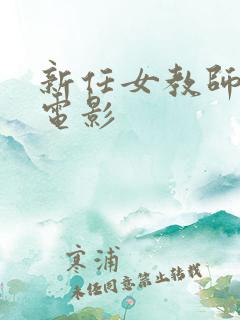 新任女教師
電影
寒浦
未经同意禁止转载